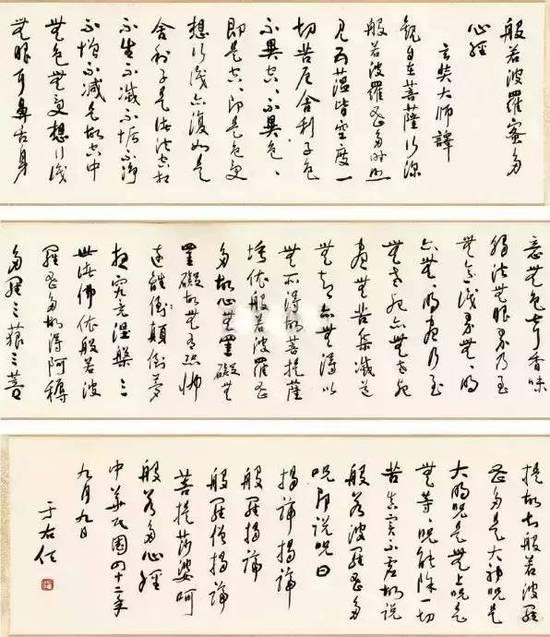 般若波羅蜜多
心經
玄奘大師譯
觀自在菩薩行深
般若波羅蜜多時照
見五蘊皆空度一
切苦厄舍利子色
不異空々不異色々
即是空々即是色受
想行識亦復如是
舍利子是諸法空相
不生不滅不垢不淨
不增不減是故空中
無色無受想行識
無眼耳鼻舌身
意無色聲香味
觸法無眼界乃至
無意識界無々明
亦無々明盡乃至
無老死亦無老死
盡無苦集滅道
無智亦無得以
無所得故菩提薩
埵依般若波羅蜜
多故心無罣礙無
罣礙故無有恐怖
遠離倒顛倒夢
想究竟涅槃三
世諸佛依般若波
羅蜜多故得阿耨
多羅三藐三菩
提故知般若波羅
蜜多是大神咒是
大明咒是無上咒是
無等々咒能除一切
苦真實不虛故說
般若波羅蜜多
咒即說咒曰
揭諦揭諦
般羅揭諦
般羅僧揭諦
菩提莎婆呵
般若多心經
中華民國四十二年
九月九日
于右任